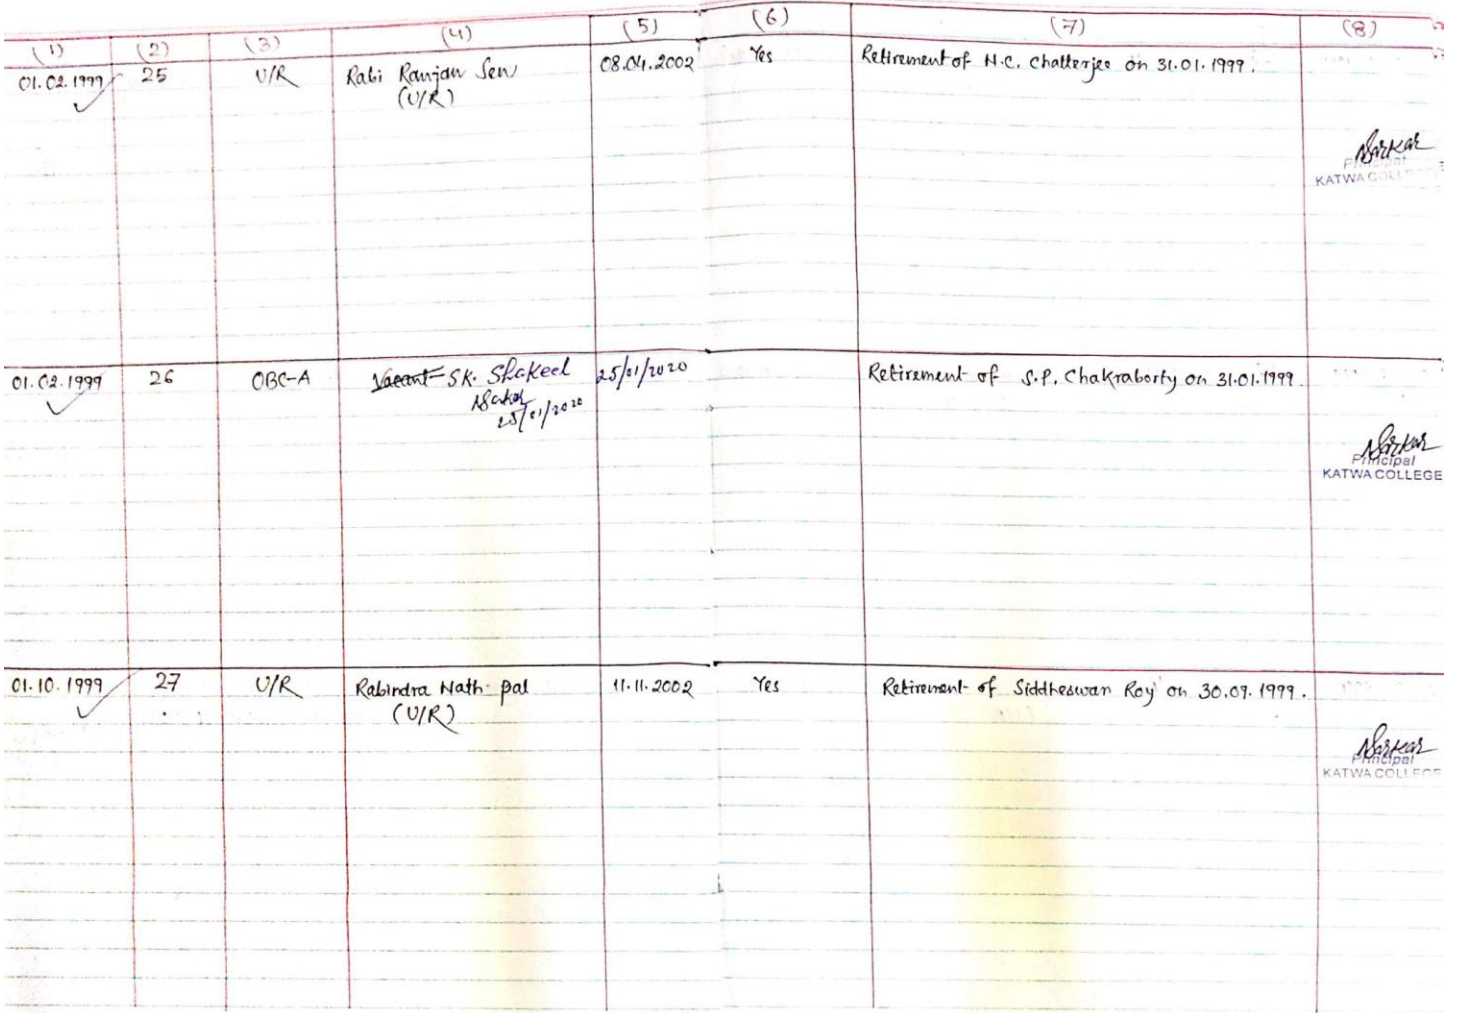 (1) (2) (3) (4) (5) (6) (7) (8)
01.02.1999 25 U/R Rabi Ranjan Sen 08.04.2002 Yes Retirement of N.C. Chatterjee on 31.01.1999.
(U/R)
Sarkar
Principal
KATWA COLLEGE
01.02.1999 26 OBC-A Vacant SK. Shakeel 25/01/2020 Retirement of S.P. Chakraborty on 31.01.1999.
Sarkar
25/01/2020
Sarkar
Principal
KATWA COLLEGE
01.10.1999 27 U/R Rabindra Nath Pal 11.11.2002 Yes Retirement of Siddheswar Roy on 30.09.1999.
(U/R)
Sarkar
Principal
KATWA COLLEGE